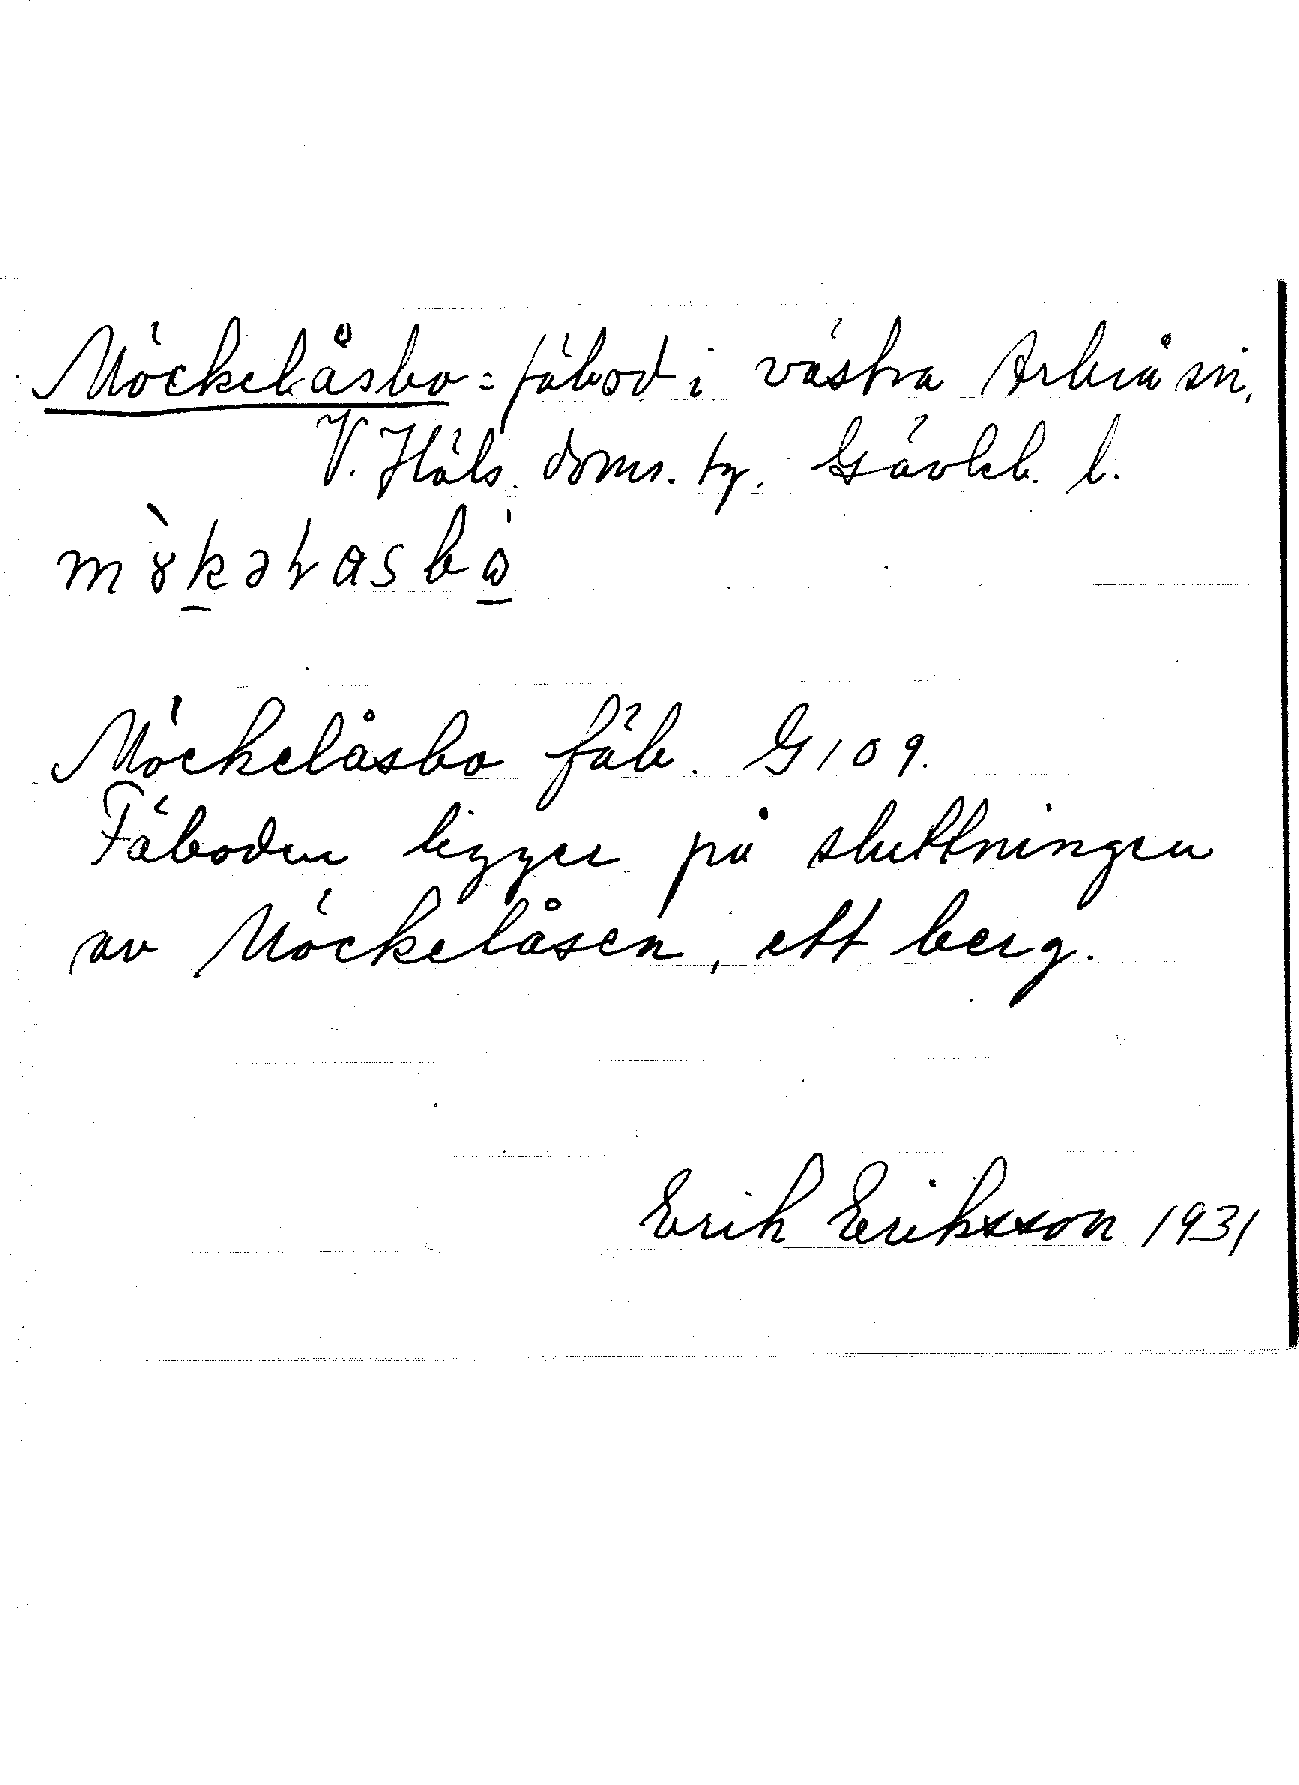 Möckelåsbo = fäbod i västra Arbrå sn.
V. Häls. doms. tg. Gävleb. l.
Möckelåsbo fäb. G 109.
Fäboden ligger på sluttningen
av Möckelåsen, ett berg.
Erik Eriksson 1931